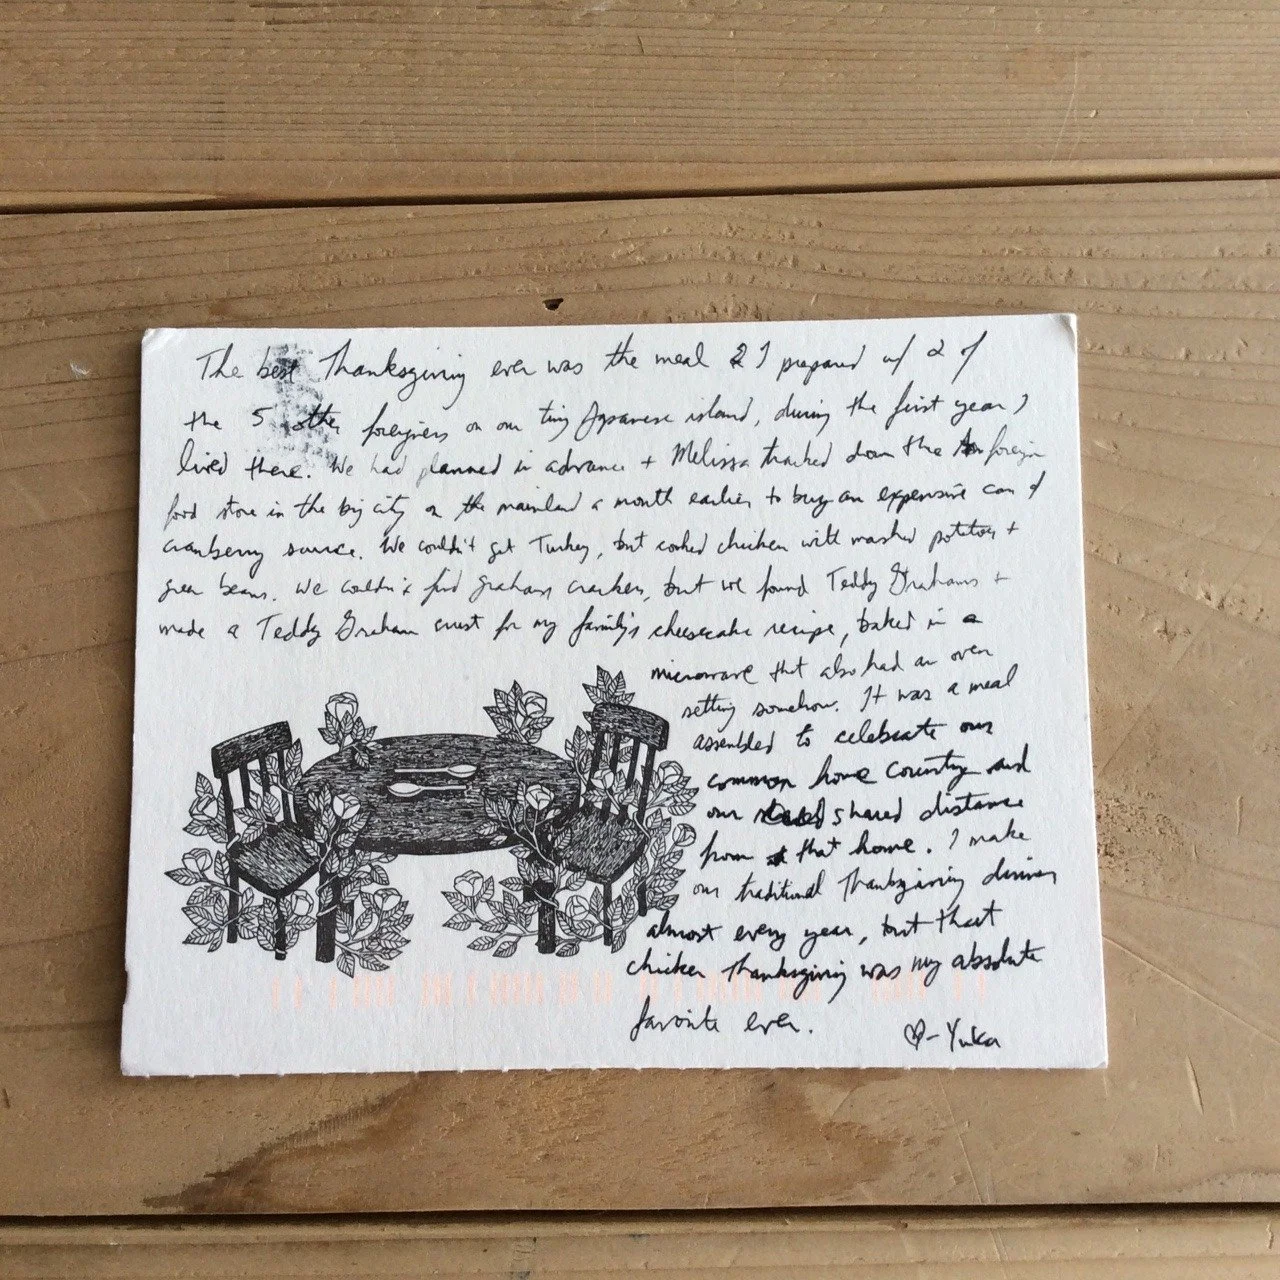 The best Thanksgiving ever was the meal I prepared w/ 2 of
the 5 other foreigners on our tiny Japanese island, during the first year I
lived there. We had planned in advance + Melissa tracked down the foreign
food store in the big city on the mainland a month earlier to buy an expensive can of
cranberry sauce. We couldn't get Turkey, but cooked chicken with mashed potatoes +
green beans. We couldn't find graham crackers, but we found Teddy Grahams +
made a Teddy Graham crust for my family's cheesecake recipe, baked in a
microwave that also had an oven
setting somehow. It was a meal
assembled to celebrate our
common home country and
our shared distance
from that home. I make
our traditional Thanksgiving dinner
almost every year, but that
chicken Thanksgiving was my absolute
favorite ever.
♡- Yuka